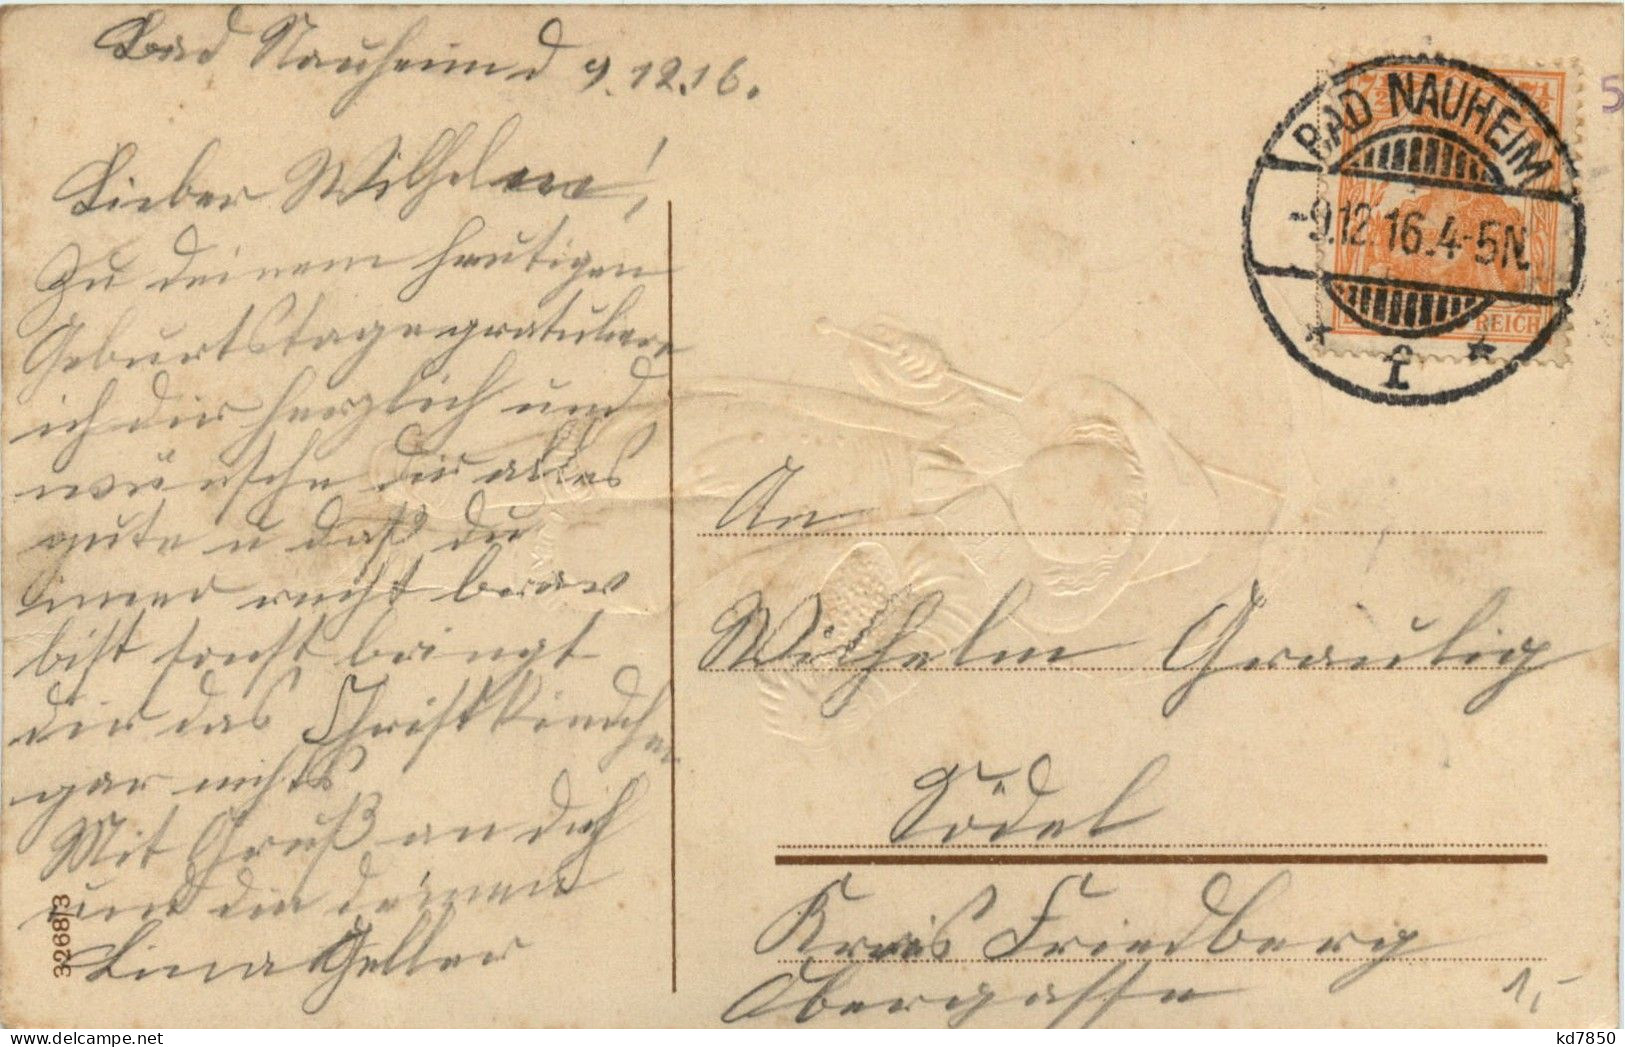 Bad Nauheim d 9.12.16.
Lieber Wilhelm!
Zu deinem heutigen
Geburtstage gratuliere
ich dir herzlich und
wünsche dir alles
gute u daß du
immer recht brav
bist sonst bringt
dir das Christkindchen
gar nichts
Mit Gruß an dich
und die deinen
Lina Geller
32668/3
BAD NAUHEIM
-9.12.16.4-5N.
* f *
7½ 7½
REICH
5
An
Wilhelm Graulig
Södel
Kreis Friedberg
Obergasse
1,-
kd7850